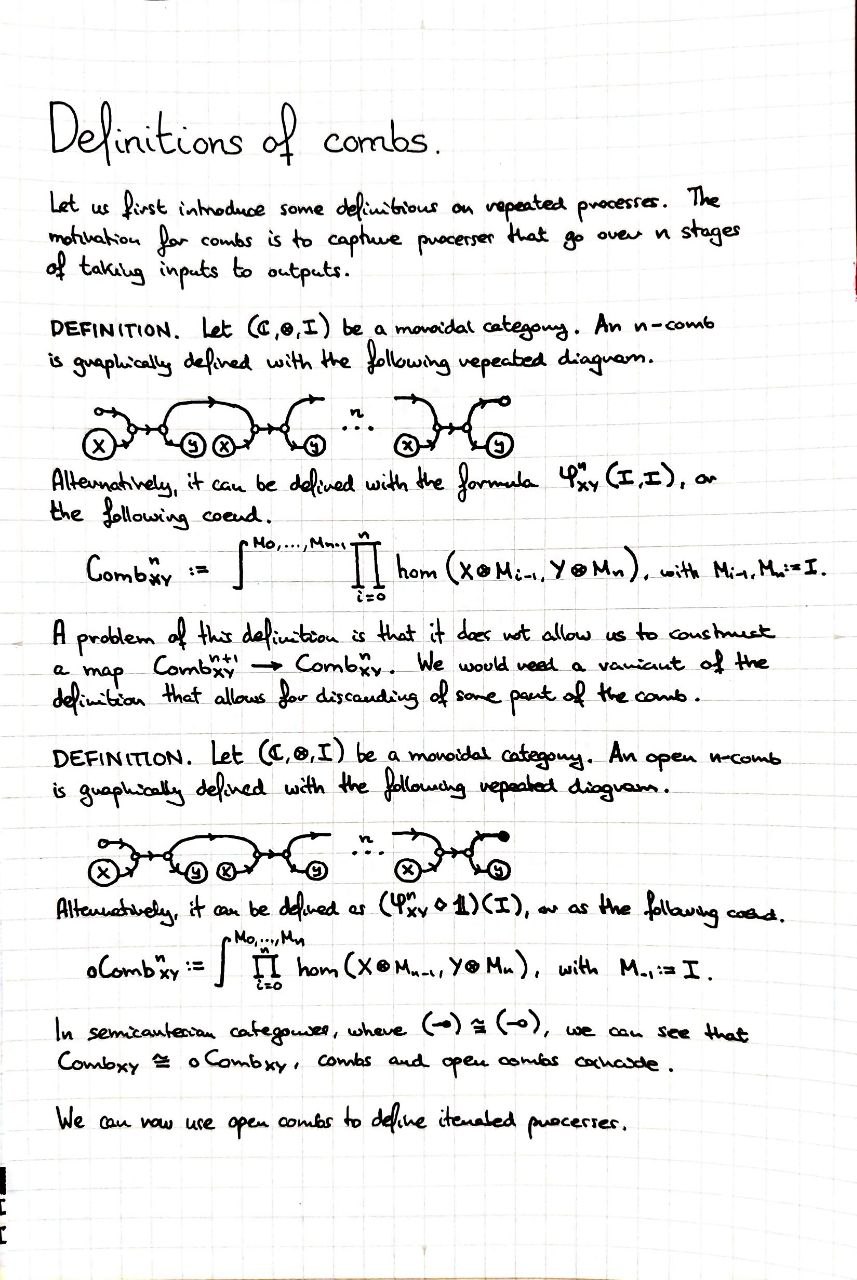 Definitions of combs.
Let us first introduce some definitions on repeated processes. The
motivation for combs is to capture processes that go over n stages
of taking inputs to outputs.
DEFINITION. Let (ℂ,⊗,I) be a monoidal category. An n-comb
is graphically defined with the following repeated diagram.
X Y X Y n ... X Y
Alternatively, it can be defined with the formula Ψⁿ_XY (I,I), or
the following coend.
Combⁿ_XY := ∫^{M₀,...,Mₙ₋₁} ∏_{i=0}^{n} hom (X⊗Mᵢ₋₁, Y⊗Mₙ), with Mᵢ₋₁, Mₙ := I.
A problem of this definition is that it does not allow us to construct
a map Combⁿ⁺¹_XY → Combⁿ_XY. We would need a variant of the
definition that allows for discarding of some part of the comb.
DEFINITION. Let (ℂ,⊗,I) be a monoidal category. An open n-comb
is graphically defined with the following repeated diagram.
X Y X Y n ... X Y
Alternatively, it can be defined as (Ψⁿ_XY ⋄ 𝟙)(I), or as the following coend.
oCombⁿ_XY := ∫^{M₀,...,Mₙ} ∏_{i=0}^{n} hom (X⊗Mₙ₋₁, Y⊗Mₙ), with M₋₁ := I.
In semicartesian categories, where (⊸) ≅ (⊸), we can see that
Comb_XY ≅ oComb_XY, combs and open combs coincide.
We can now use open combs to define iterated processes.